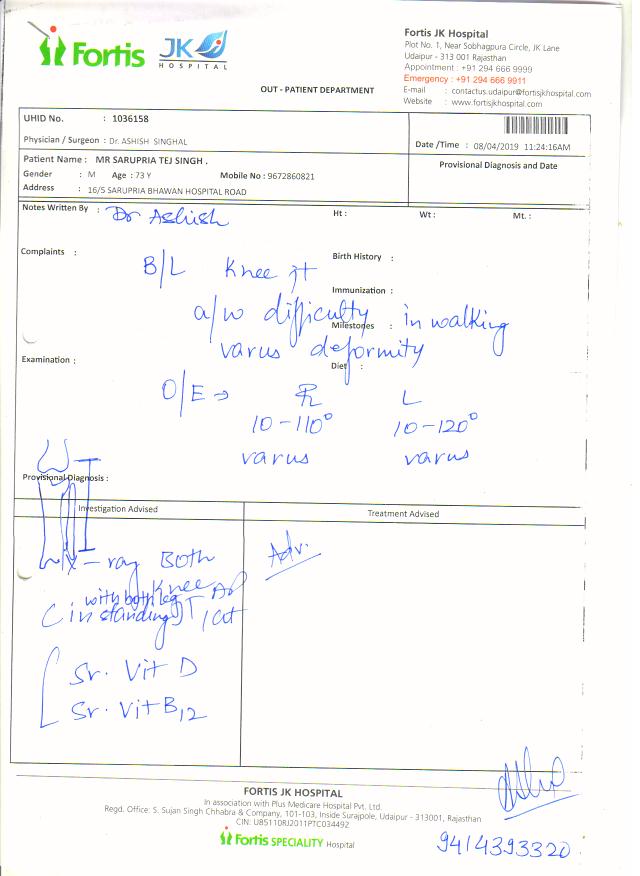 Fortis JK HOSPITAL
Fortis JK Hospital
Plot No. 1, Near Sobhagpura Circle, JK Lane
Udaipur - 313 001 Rajasthan
Appointment : +91 294 666 9999
Emergency : +91 294 666 9911
E-mail : contactus.udaipur@fortisjkhospital.com
Website : www.fortisjkhospital.com
OUT - PATIENT DEPARTMENT
UHID No. : 1036158
Physician / Surgeon : Dr. ASHISH SINGHAL
Date /Time : 08/04/2019 11:24:16AM
Patient Name : MR SARUPRIA TEJ SINGH .
Provisional Diagnosis and Date
Gender : M Age : 73 Y Mobile No : 9672860821
Address : 16/5 SARUPRIA BHAWAN HOSPITAL ROAD
Notes Written By : Dr Ashish Ht : Wt : Mt. :
Complaints :
Birth History :
B/L Knee jt
Immunization :
a/w difficulty in walking
Milestones :
varus deformity
Examination :
Diet :
O/E → R L
10-110° 10-120°
varus varus
Provisional Diagnosis :
Investigation Advised Treatment Advised
X-ray Both Adv.
Knee AP
with both leg
in standing
Sr. Vit D
Sr. Vit B12
FORTIS JK HOSPITAL
In association with Plus Medicare Hospital Pvt. Ltd.
Regd. Office: S. Sujan Singh Chhabra & Company, 101-103, Inside Surajpole, Udaipur - 313001, Rajasthan
CIN: U85110RJ2011PTC034492
Fortis SPECIALITY Hospital
9414393320